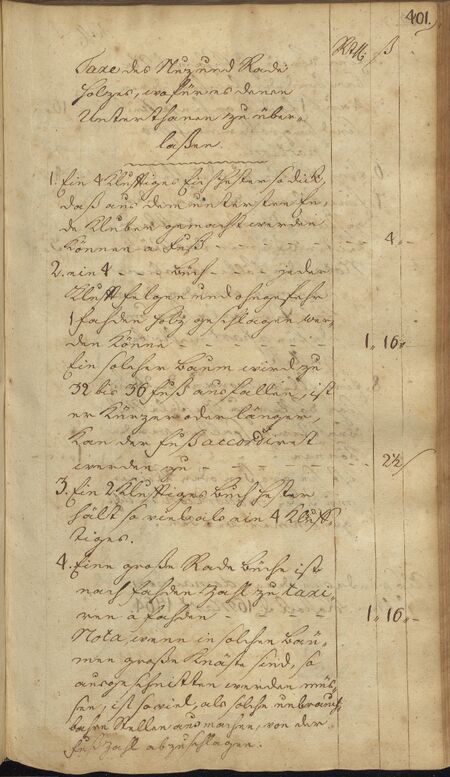 401.
Rthl. ß
Taxe des Nuz und Rade
Holzes, wofür es denen
Unterthanen zu über-
laßen.
1. Ein 4 Klufftiges Eich Hester so dick,
daß aus dem untersten En-
de Kluben gemacht werden
können a Fuß - - - - 4 -
2. ein 4 - - Büch - - - in der
Klufft Felgen und ohngefehr
1 fahden Holz geschlagen wer-
den könne - - 1 " 16 "
Ein solcher Baum wird zu
32 bis 36 Fuß ausfallen, ist
er kürzer oder länger,
kan der Fuß accordiret
werden zu - - - - - 2½
3. Ein 2 Klufftiges Büch Hester
hält so viel als ein 4 Klufft-
tiges.
4. Eine große Rade Büche ist
nach fahden Zahl zu taxi-
ren a fahden - - 1 " 16 " -
Nota, wenn in solchen Bäu-
men große Knäste sind, so
ausgeschnitten werden müs-
sen, ist so viel, als solche unbrauch-
bahre Stellen ausmachen, von der
Fuß Zahl abzuschlagen.